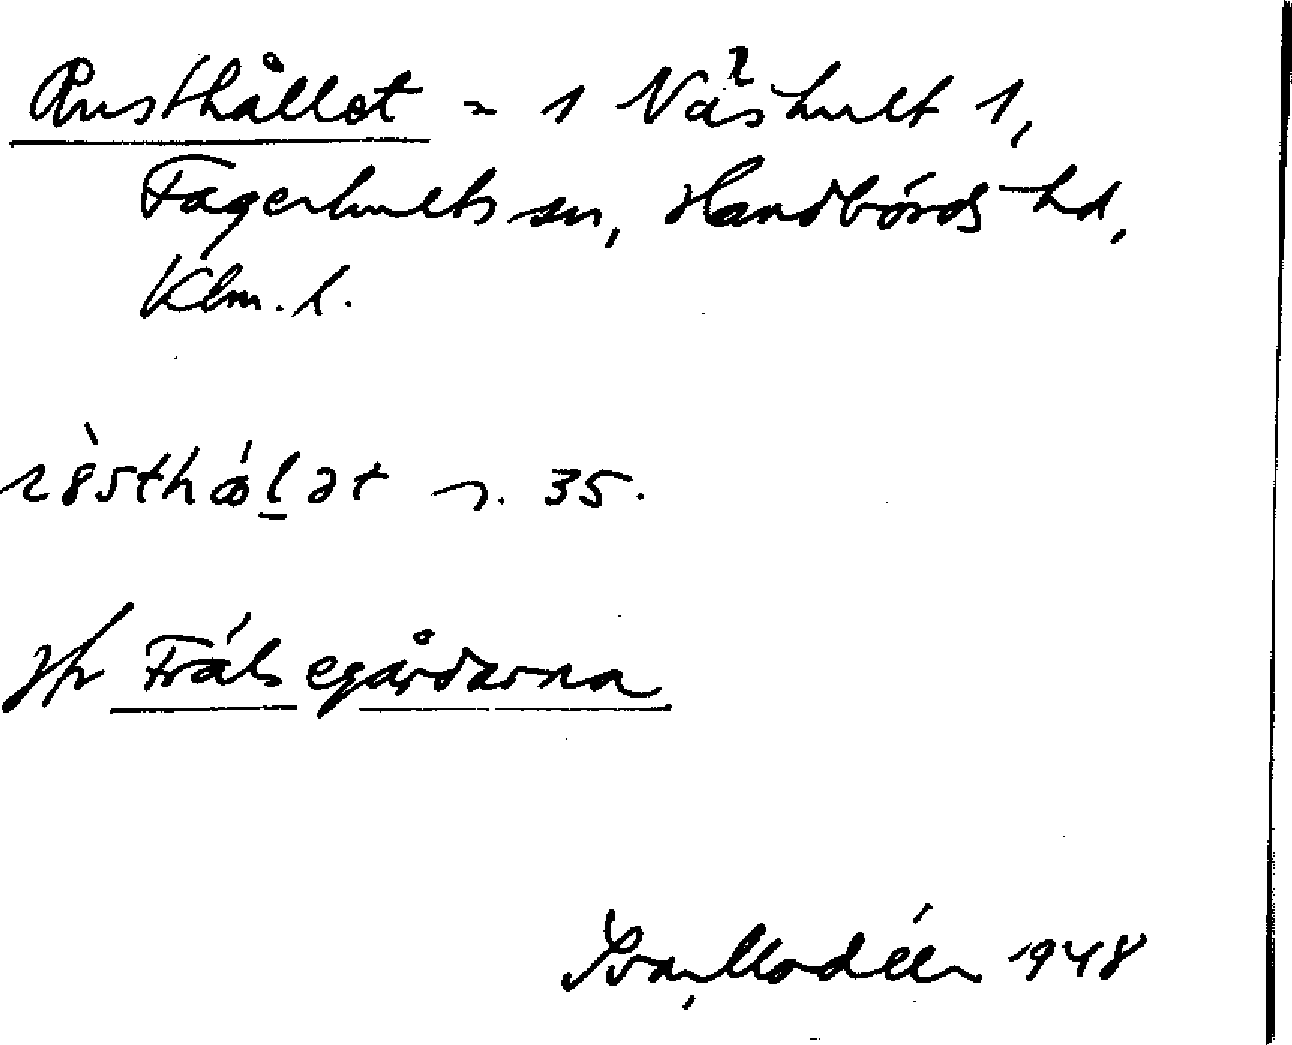 Rusthållet = 1 Våshult 1,
Fagerhults sn, Handbörds hd,
Klm. l.
r8̀sthǻl̲ət n. 35.
jfr Frälsegårdarna
Ivar Modéer 1948